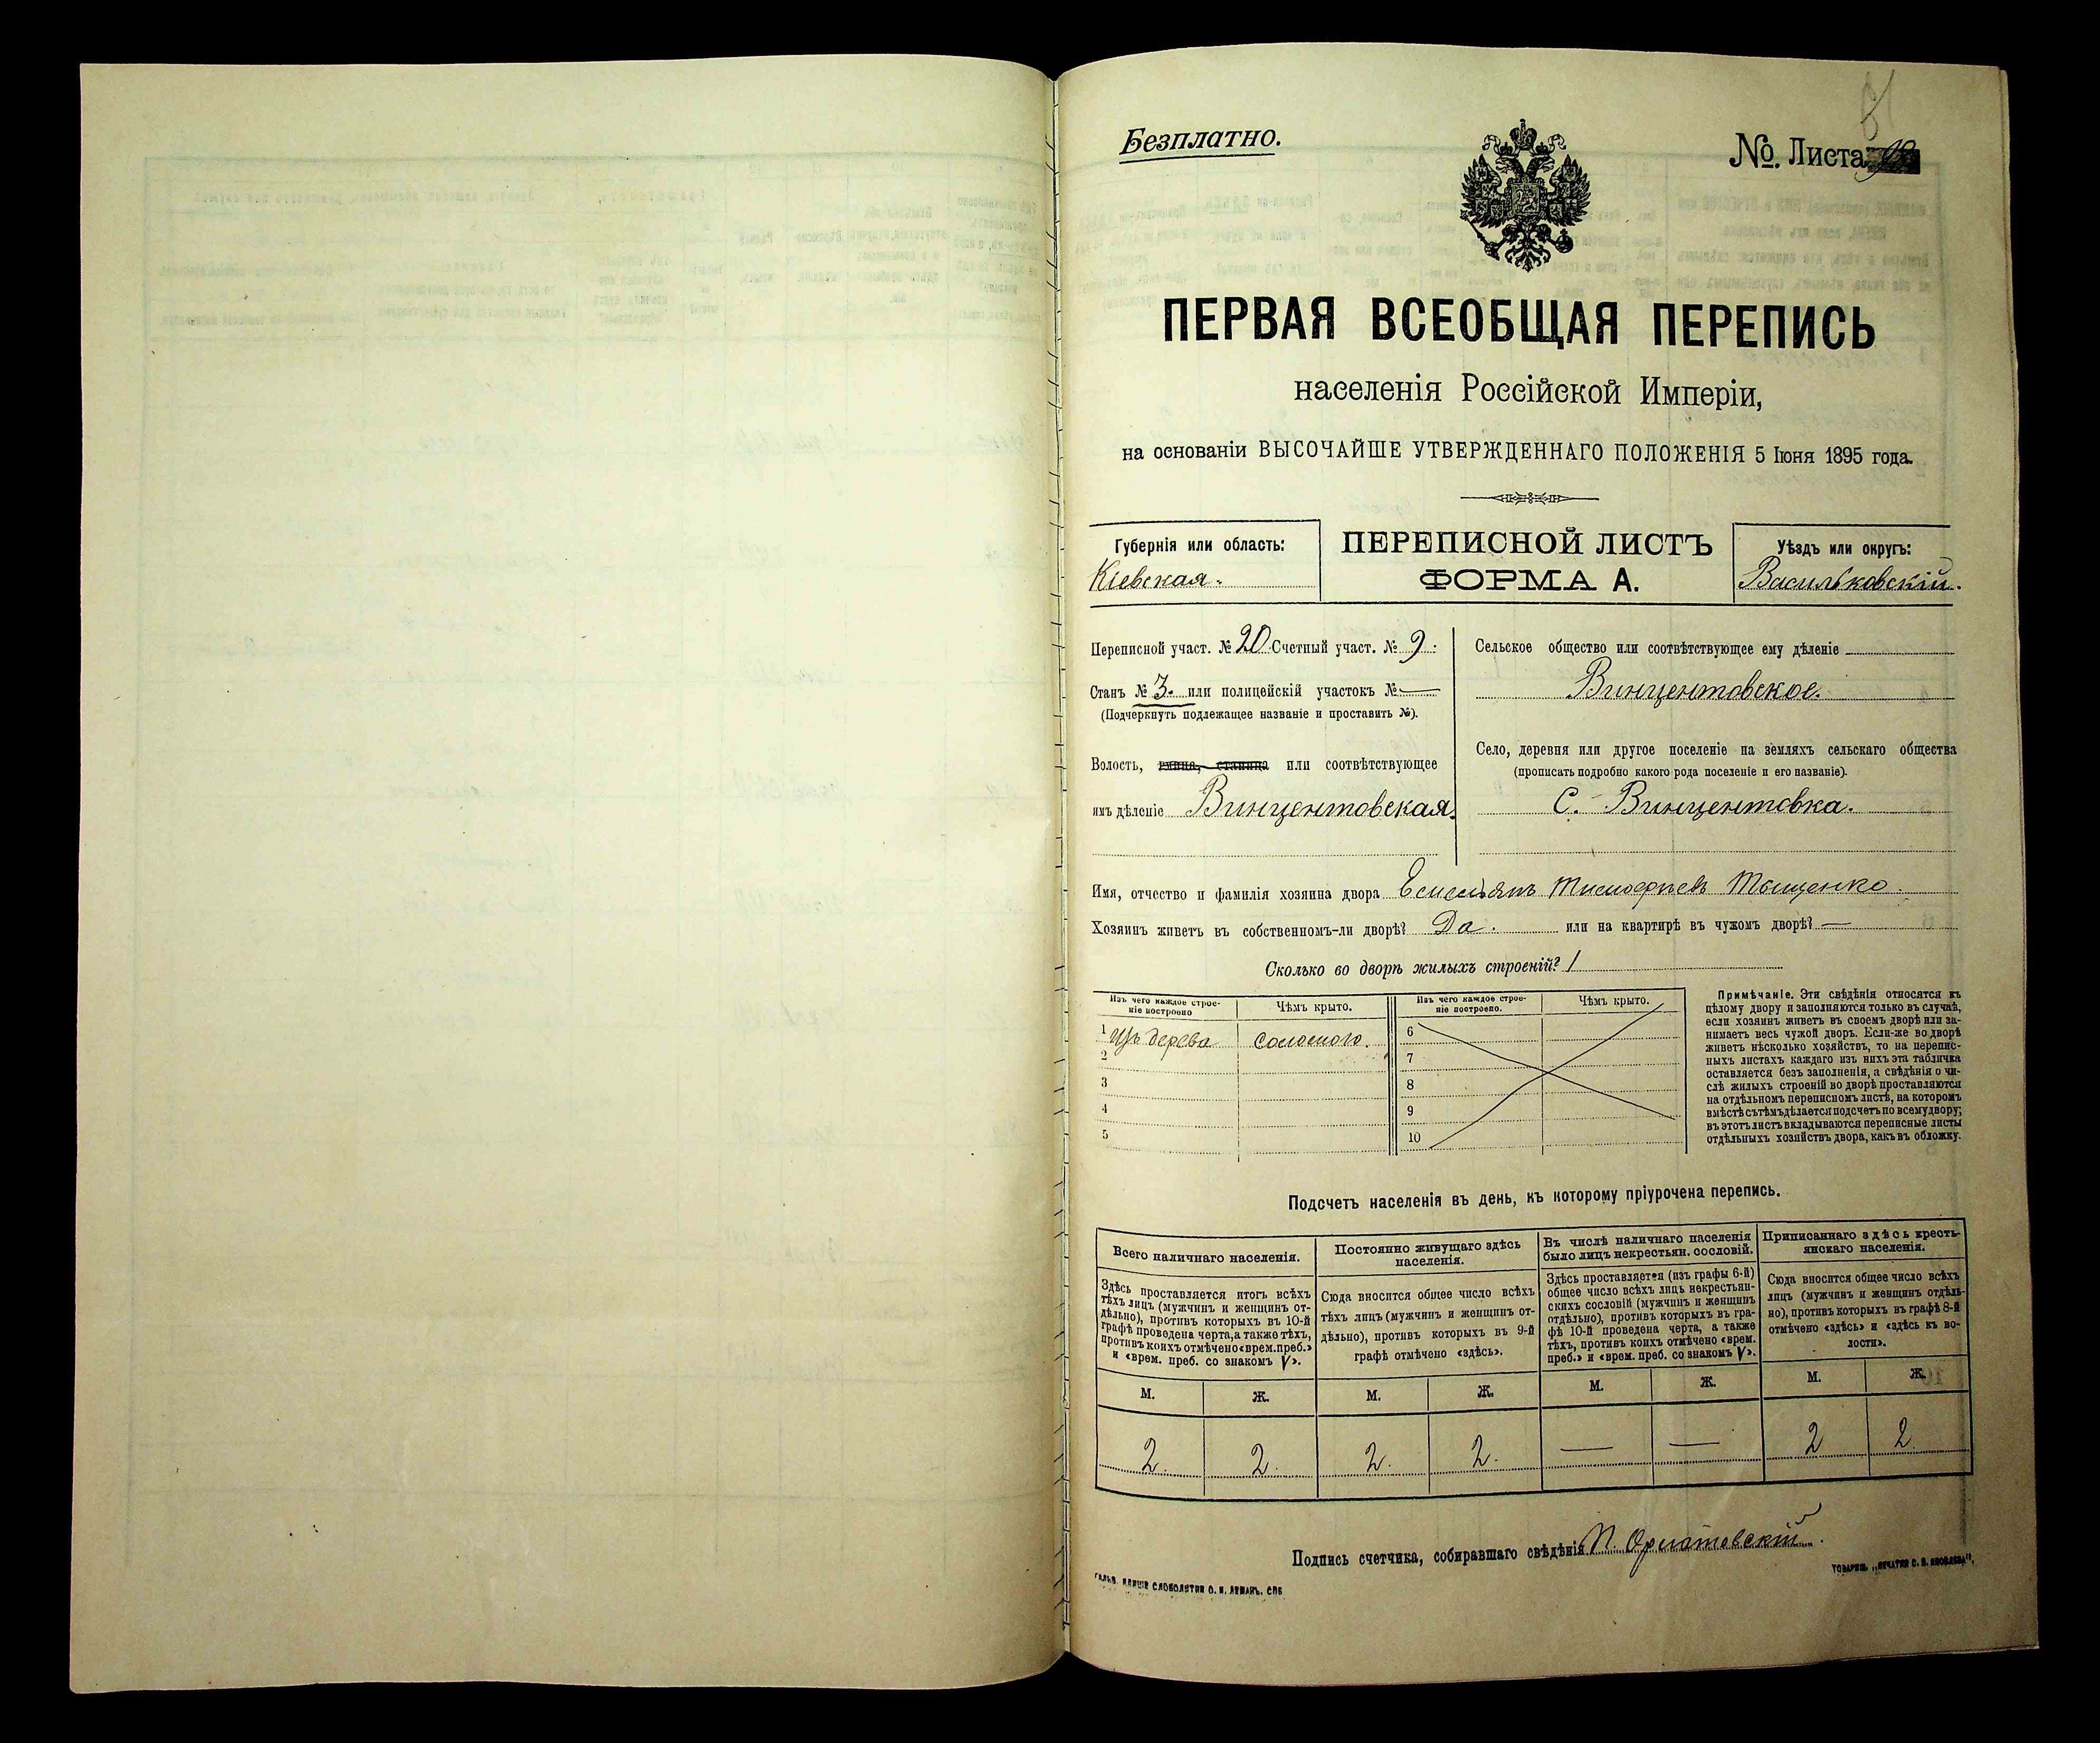 Безплатно.
№. Листа
ПЕРВАЯ ВСЕОБЩАЯ ПЕРЕПИСЬ
населенія Россійской Имперіи,
на основаніи ВЫСОЧАЙШЕ УТВЕРЖДЕННАГО ПОЛОЖЕНІЯ 5 Іюня 1895 года.
Губернія или область:
Кіевская.
ПЕРЕПИСНОЙ ЛИСТЪ
ФОРМА А.
Уѣздъ или округъ:
Васильковскій.
Переписной участ. № 20. Счетный участ. № 9.
Станъ № 3. или полицейскій участокъ № —
(Подчеркнуть подлежащее названіе и проставить №).
Волость, гмина, станица или соотвѣтствующее
имъ дѣленіе Винцентовская.
Сельское общество или соотвѣтствующее ему дѣленіе
Винцентовское.
Село, деревня или другое поселеніе на земляхъ сельскаго общества
(прописать подробно какого рода поселеніе и его названіе).
С. Винцентовка.
Имя, отчество и фамилія хозяина двора Емельянъ Тимофѣевъ Тищенко.
Хозяинъ живетъ въ собственномъ-ли дворѣ? Да. или на квартирѣ въ чужомъ дворѣ? —
Сколько во дворѣ жилыхъ строеній? 1
Изъ чего каждое строе-
ніе построено
Чѣмъ крыто.
Изъ чего каждое строе-
ніе построено.
Чѣмъ крыто.
1 Изъ дерева соломою.
2
3
4
5
6
7
8
9
10
Примѣчаніе. Эти свѣдѣнія относятся къ
цѣлому двору и заполняются только въ случаѣ,
если хозяинъ живетъ въ своемъ дворѣ или за-
нимаетъ весь чужой дворъ. Если-же во дворѣ
живетъ нѣсколько хозяйствъ, то на перепис-
ныхъ листахъ каждаго изъ нихъ эта табличка
оставляется безъ заполненія, а свѣдѣнія о чи-
слѣ жилыхъ строеній во дворѣ проставляются
на отдѣльномъ переписномъ листѣ, на которомъ
вмѣстѣ съ тѣмъ дѣлается подсчетъ по всему двору;
въ этотъ листъ вкладываются переписные листы
отдѣльныхъ хозяйствъ двора, какъ въ обложку.
Подсчетъ населенія въ день, къ которому пріурочена перепись.
Всего наличнаго населенія.
Здѣсь проставляется итогъ всѣхъ
тѣхъ лицъ (мужчинъ и женщинъ от-
дѣльно), противъ которыхъ въ 10-й
графѣ проведена черта, а также тѣхъ,
противъ коихъ отмѣчено «врем. преб.»
и «врем. преб. со знакомъ V».
Постоянно живущаго здѣсь
населенія.
Сюда вносится общее число всѣхъ
тѣхъ лицъ (мужчинъ и женщинъ от-
дѣльно), противъ которыхъ въ 9-й
графѣ отмѣчено «здѣсь».
Въ числѣ наличнаго населенія
было лицъ некрестьян. сословій.
Здѣсь проставляется (изъ графы 6-й)
общее число всѣхъ лицъ некрестьян-
скихъ сословій (мужчинъ и женщинъ
отдѣльно), противъ которыхъ въ гра-
фѣ 10-й проведена черта, а также
тѣхъ, противъ коихъ отмѣчено «врем.
преб.» и «врем. преб. со знакомъ V».
Приписаннаго здѣсь кресть-
янскаго населенія.
Сюда вносится общее число всѣхъ
лицъ (мужчинъ и женщинъ отдѣль-
но), противъ которыхъ въ графѣ 8-й
отмѣчено «здѣсь» и «здѣсь къ во-
лости».
М. Ж. М. Ж. М. Ж. М. Ж.
2. 2. 2. 2. — — 2 2
Подпись счетчика, собиравшаго свѣдѣнія П.